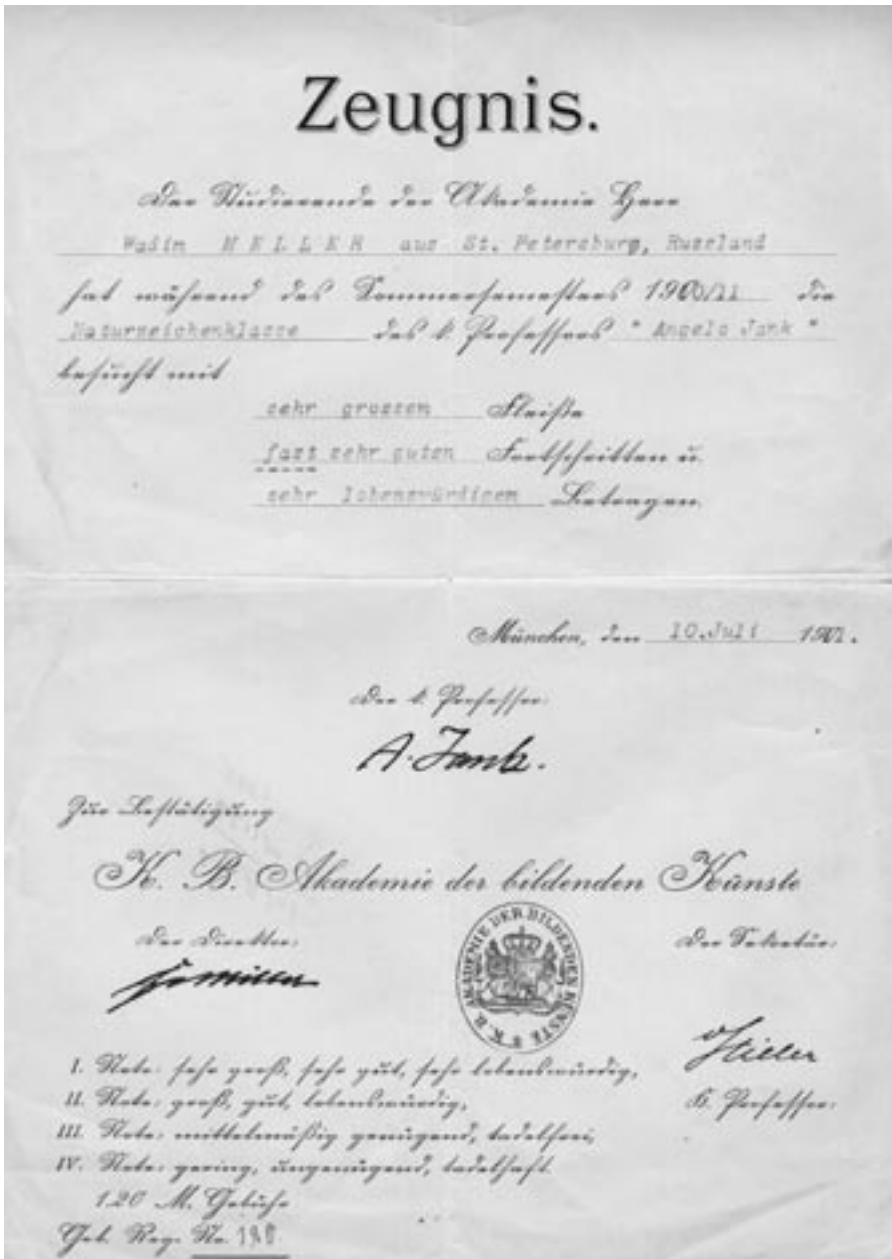 Zeugnis.
Der Studierende der Akademie Herr
Wadim MELLER aus St. Petersburg, Russland
hat während des Sommersemesters 1900/11 die
Naturzeichenklasse des k. Professors " Angelo Jank "
besucht mit
sehr grossem Fleiße
fast sehr guten Fortschritten u.
sehr lobenswürdigem Betragen.
München, den 10. Juli 19
Der k. Professor:
A. Jank.
Zur Bestätigung
K. B. Akademie der bildenden Künste
Der Direktor:
Der Sekretär:
K. B. AKADEMIE DER BILDENDEN KÜNSTE
I. Note: sehr groß, sehr gut, sehr lobenswürdig,
K. Professor:
II. Note: groß, gut, lobenswürdig,
III. Note: mittelmäßig genügend, tadelfrei,
IV. Note: gering, ungenügend, tadelhaft.
1.20 M. Gebühr
Geb. Reg. No.